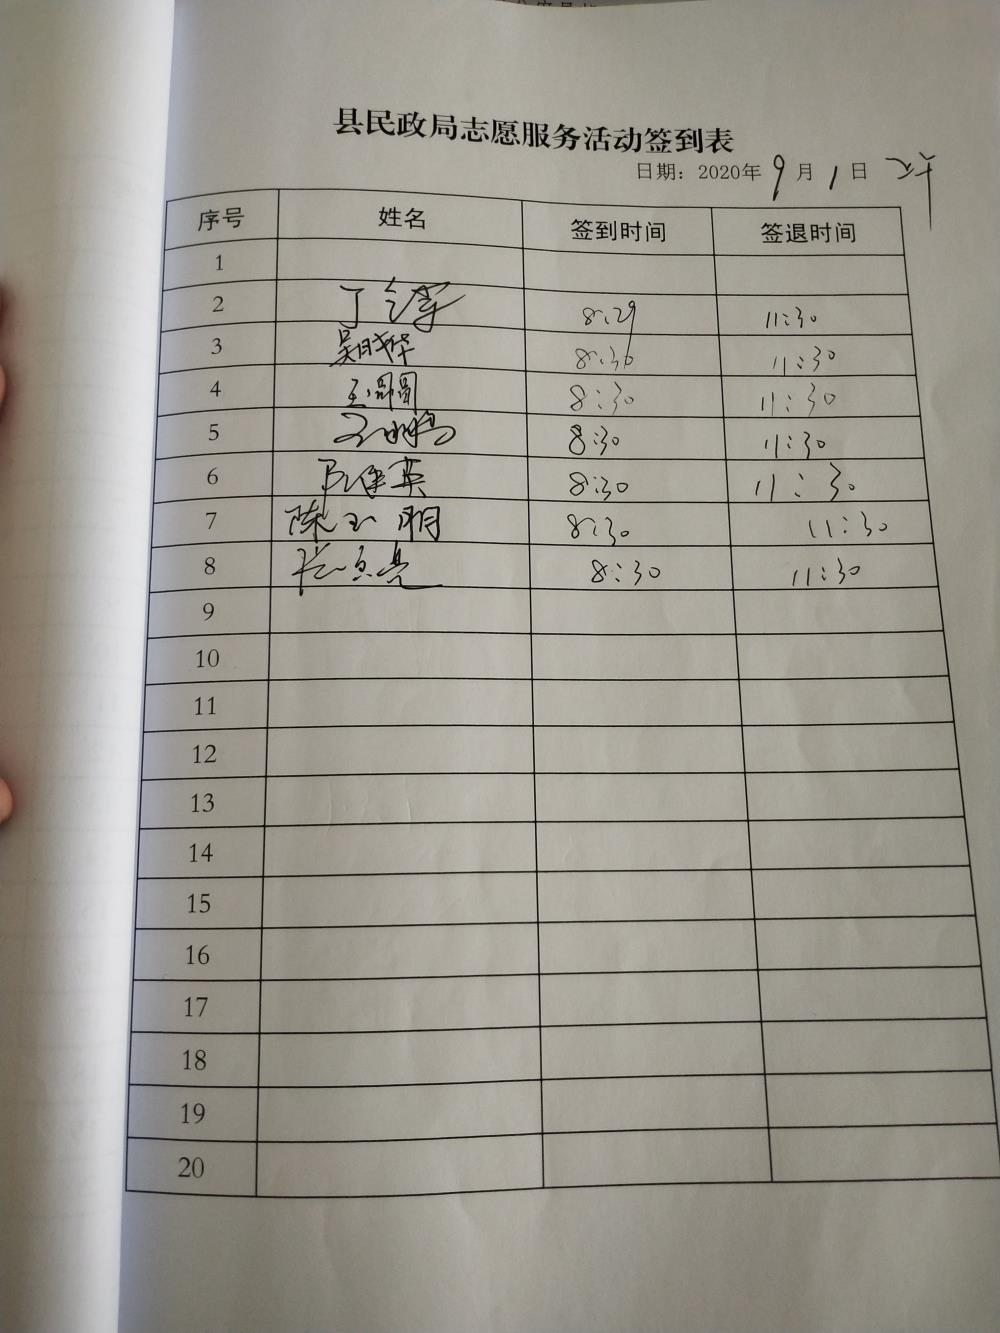 县民政局志愿服务活动签到表
日期：2020年 9 月 1 日 上午
序号 姓名 签到时间 签退时间
1
2 8:29 11:30
3 吴晓华 8:30 11:30
4 8:30 11:30
5 8:30 11:30
6 8:30 11:30
7 陈玉明 8:30 11:30
8 8:30 11:30
9
10
11
12
13
14
15
16
17
18
19
20